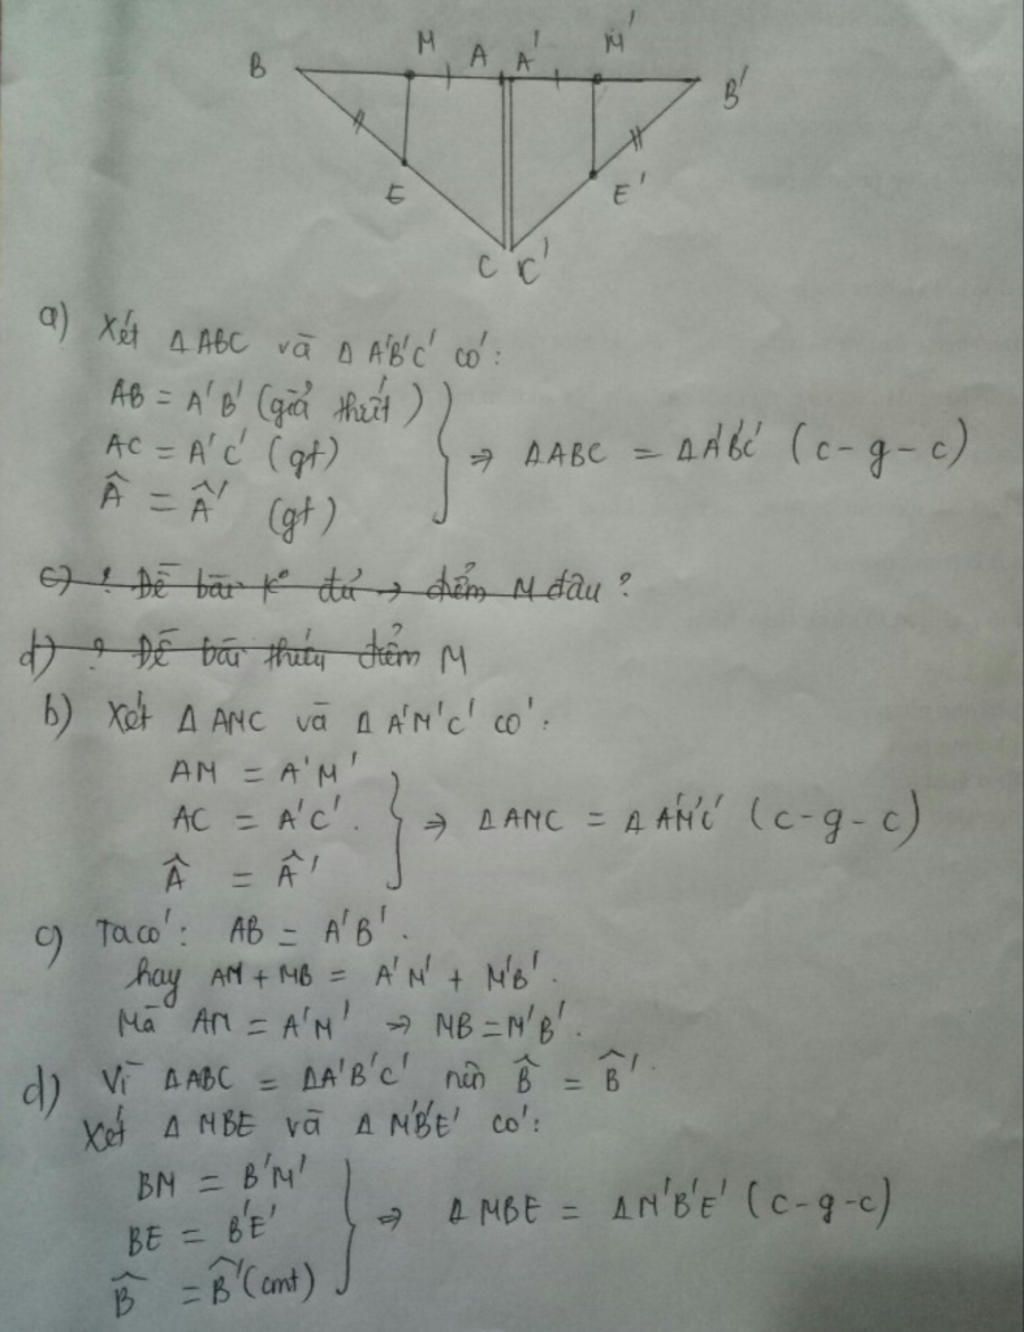 B M A A' M' B'
E E'
C C'
a) Xét Δ ABC và Δ A'B'C' có:
AB = A'B' (giả thiết)
AC = A'C' (gt)
Â = Â' (gt)
⇒ ΔABC = ΔA'B'C' (c-g-c)
c) ? Đề bài k° đủ → điểm M đâu ?
d) ? Đề bài thiếu điểm M
b) Xét Δ AMC và Δ A'M'C' có:
AM = A'M'
AC = A'C'.
Â = Â'
⇒ ΔAMC = ΔA'M'C' (c-g-c)
c) Ta có: AB = A'B'.
hay AM + MB = A'M' + M'B'.
Mà AM = A'M' ⇒ MB = M'B'.
d) Vì ΔABC = ΔA'B'C' nên B̂ = B̂'.
Xét Δ MBE và Δ M'B'E' có:
BM = B'M'
BE = B'E'
B̂ = B̂' (cmt)
⇒ ΔMBE = ΔM'B'E' (c-g-c)